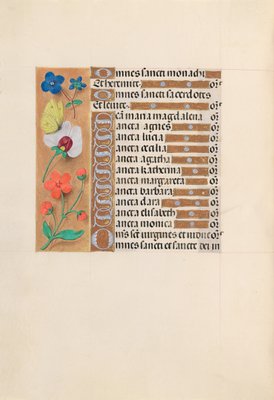 Omnes sancti monachi
Et heremite. or̃
Omnes sancti sacerdotes
Et leuite. or̃
Sc̃a maria magdalena or̃
Sancta agnes or̃
Sancta lucia or̃
Sancta cecilia or̃
Sancta agatha or̃
Sancta katherina or̃
Sancta margareta or̃
Sancta barbara or̃
Sancta clara or̃
Sancta elisabeth or̃
Sancta monica or̃
Om̃s sc̃e virgines et vidue or̃
Omnes sancti et sancte dei in